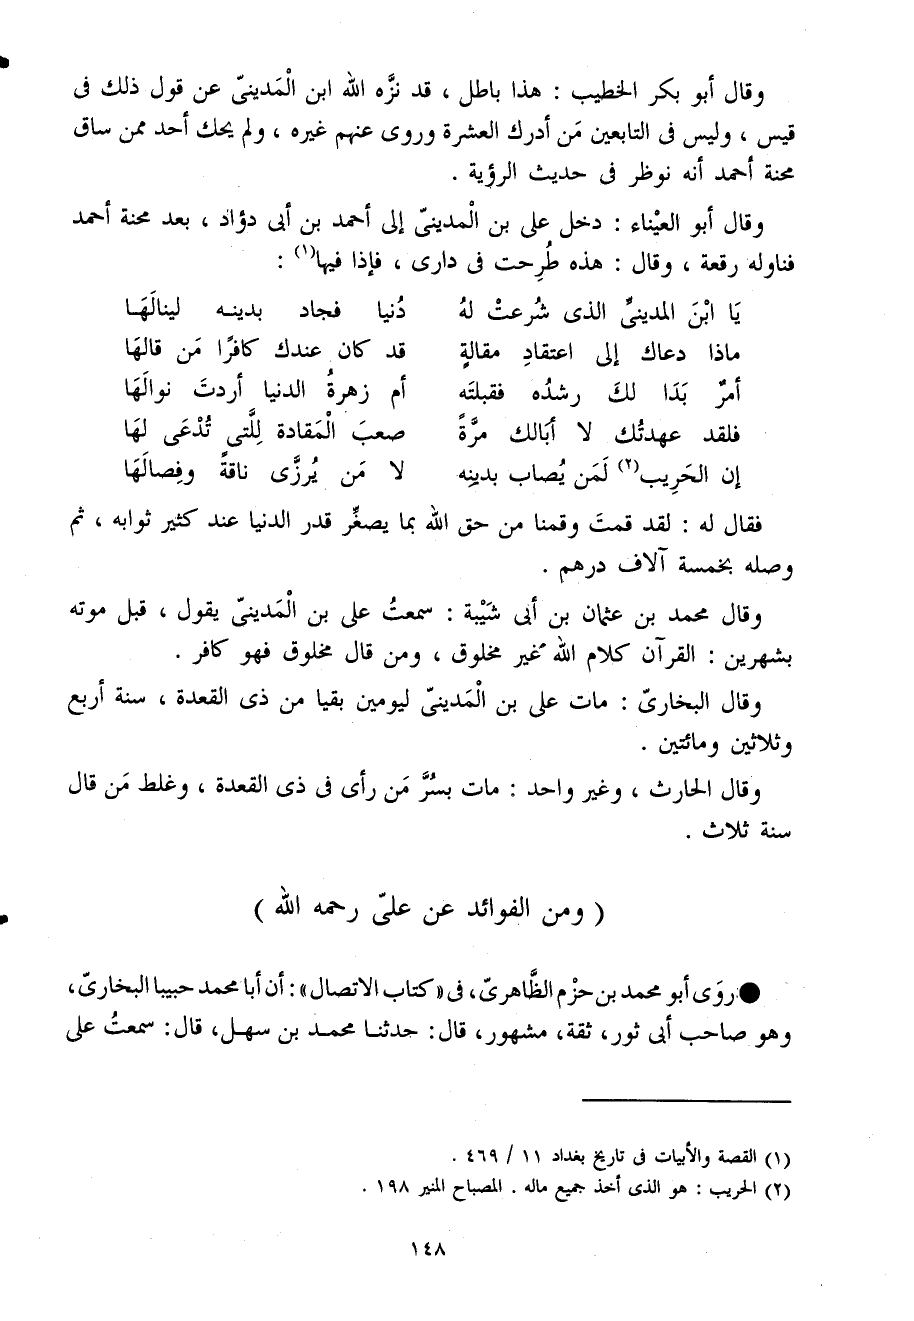 وقال أبو بكر الخطيب : هذا باطل ، قد نزَّه الله ابن الْمَدينىّ عن قول ذلك فى
قيس ، وليس فى التابعين مَن أدرك العشرة وروى عنهم غيره ، ولم يحك أحد ممن ساق
محنة أحمد أنه نوظر فى حديث الرؤية .
وقال أبو العيْناء : دخل على بن الْمدينىّ إلى أحمد بن أبى دؤاد ، بعد محنة أحمد
فناوله رقعة ، وقال : هذه طُرِحت فى دارى ، فإذا فيها(١) :
يَا ابْنَ المدينىِّ الذى شُرعتْ لهُ دُنيا فجاد بدينـه لينالَهَـا
ماذا دعاك إلى اعتقادِ مقالةٍ قد كان عندك كافرًا مَن قالهَا
أمرٌ بَدَا لكَ رشدُه فقبلتَه أم زهرةُ الدنيا أردتَ نوالَهَا
فلقد عهدتُك لا أبَالك مرَّةً صعبَ الْمَقادة لِلَّتى تُدْعَى لهَا
إن الحَرِيب(٢) لَمَن يُصاب بدينِه لا مَن يُرزَّى ناقةً وفِصالَهَا
فقال له : لقد قمتَ وقمنا من حق الله بما يصغِّر قدر الدنيا عند كثير ثوابه ، ثم
وصله بخمسة آلاف درهم .
وقال محمد بن عثمان بن أبى شَيْبة : سمعتُ على بن الْمَدينىّ يقول ، قبل موته
بشهرين : القرآن كلام الله غير مخلوق ، ومن قال مخلوق فهو كافر .
وقال البخارىّ : مات على بن الْمَدينىّ ليومين بقيا من ذى القعدة ، سنة أربع
وثلاثين ومائتين .
وقال الحارث ، وغير واحد : مات بسُرَّ مَن رأى فى ذى القعدة ، وغلط مَن قال
سنة ثلاث .
( ومن الفوائد عن علىّ رحمه الله )
● روَى أبو محمد بن حزْم الظَّاهرىّ، فى «كتاب الاتصال»: أن أبا محمد حبيبا البخارىّ،
وهو صاحب أبى ثور، ثقة، مشهور، قال: حدثنـا محمـد بن سهـل، قال: سمعتُ على
(١) القصة والأبيات فى تاريخ بغداد ١١ / ٤٦٩ .
(٢) الحريب : هو الذى أخذ جميع ماله . المصباح المنير ١٩٨ .
١٤٨